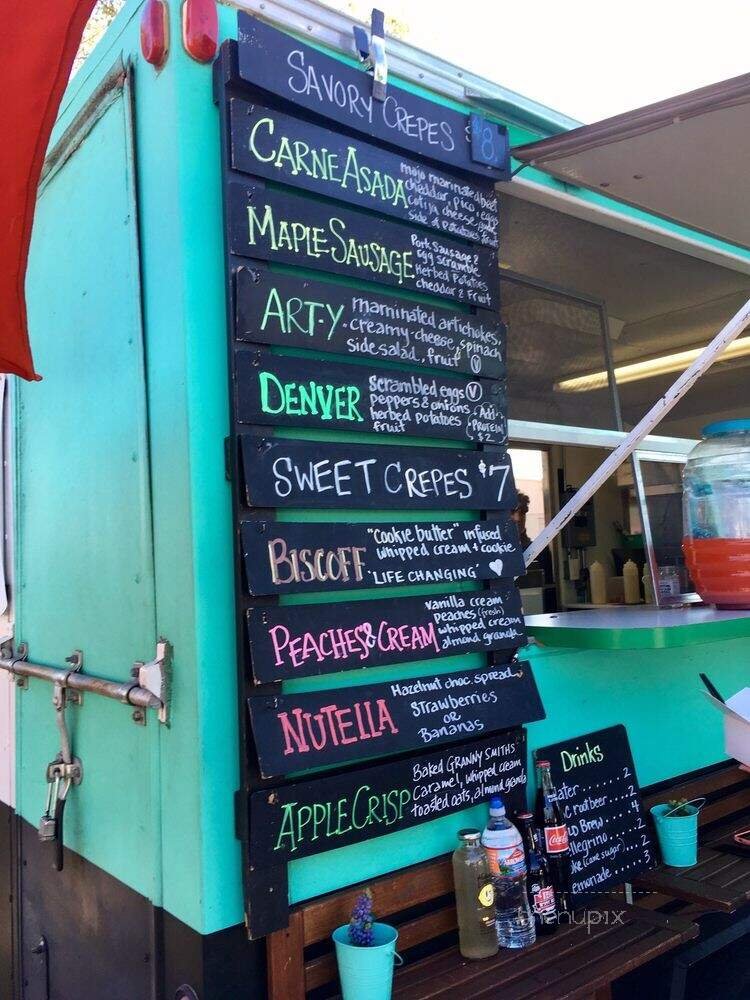 SAVORY CREPES $8
CARNE ASADA
mojo marinated beef
cheddar, pico, eggs
cotija cheese, guac
side of potatoes, fruit
MAPLE SAUSAGE
Pork Sausage &
Egg scramble
Herbed Potatoes
cheddar & Fruit
ART-Y
marninated artichokes,
creamy cheese, spinach
side salad, fruit V
DENVER
scrambled eggs V
peppers & onions
herbed potatoes
fruit
Add
PROTEIN
$2
SWEET CREPES $7
BISCOFF
"Cookie butter" infused
whipped cream + cookie
"LIFE CHANGING"
PEACHES & CREAM
vanilla cream
peaches (fresh)
whipped cream
almond granola
NUTELLA
Hazelnut choc. spread
Strawberries
OR
Bananas
APPLE CRISP
Baked GRANNY SMITHS
Caramel, whipped cream
toasted oats, almond granola
Drinks
ater ........ 2
C root beer .... 2
LD Brew ..... 4
llegrino ..... 2
oke (cane sugar) .. 2
emonade .... 3
menupix